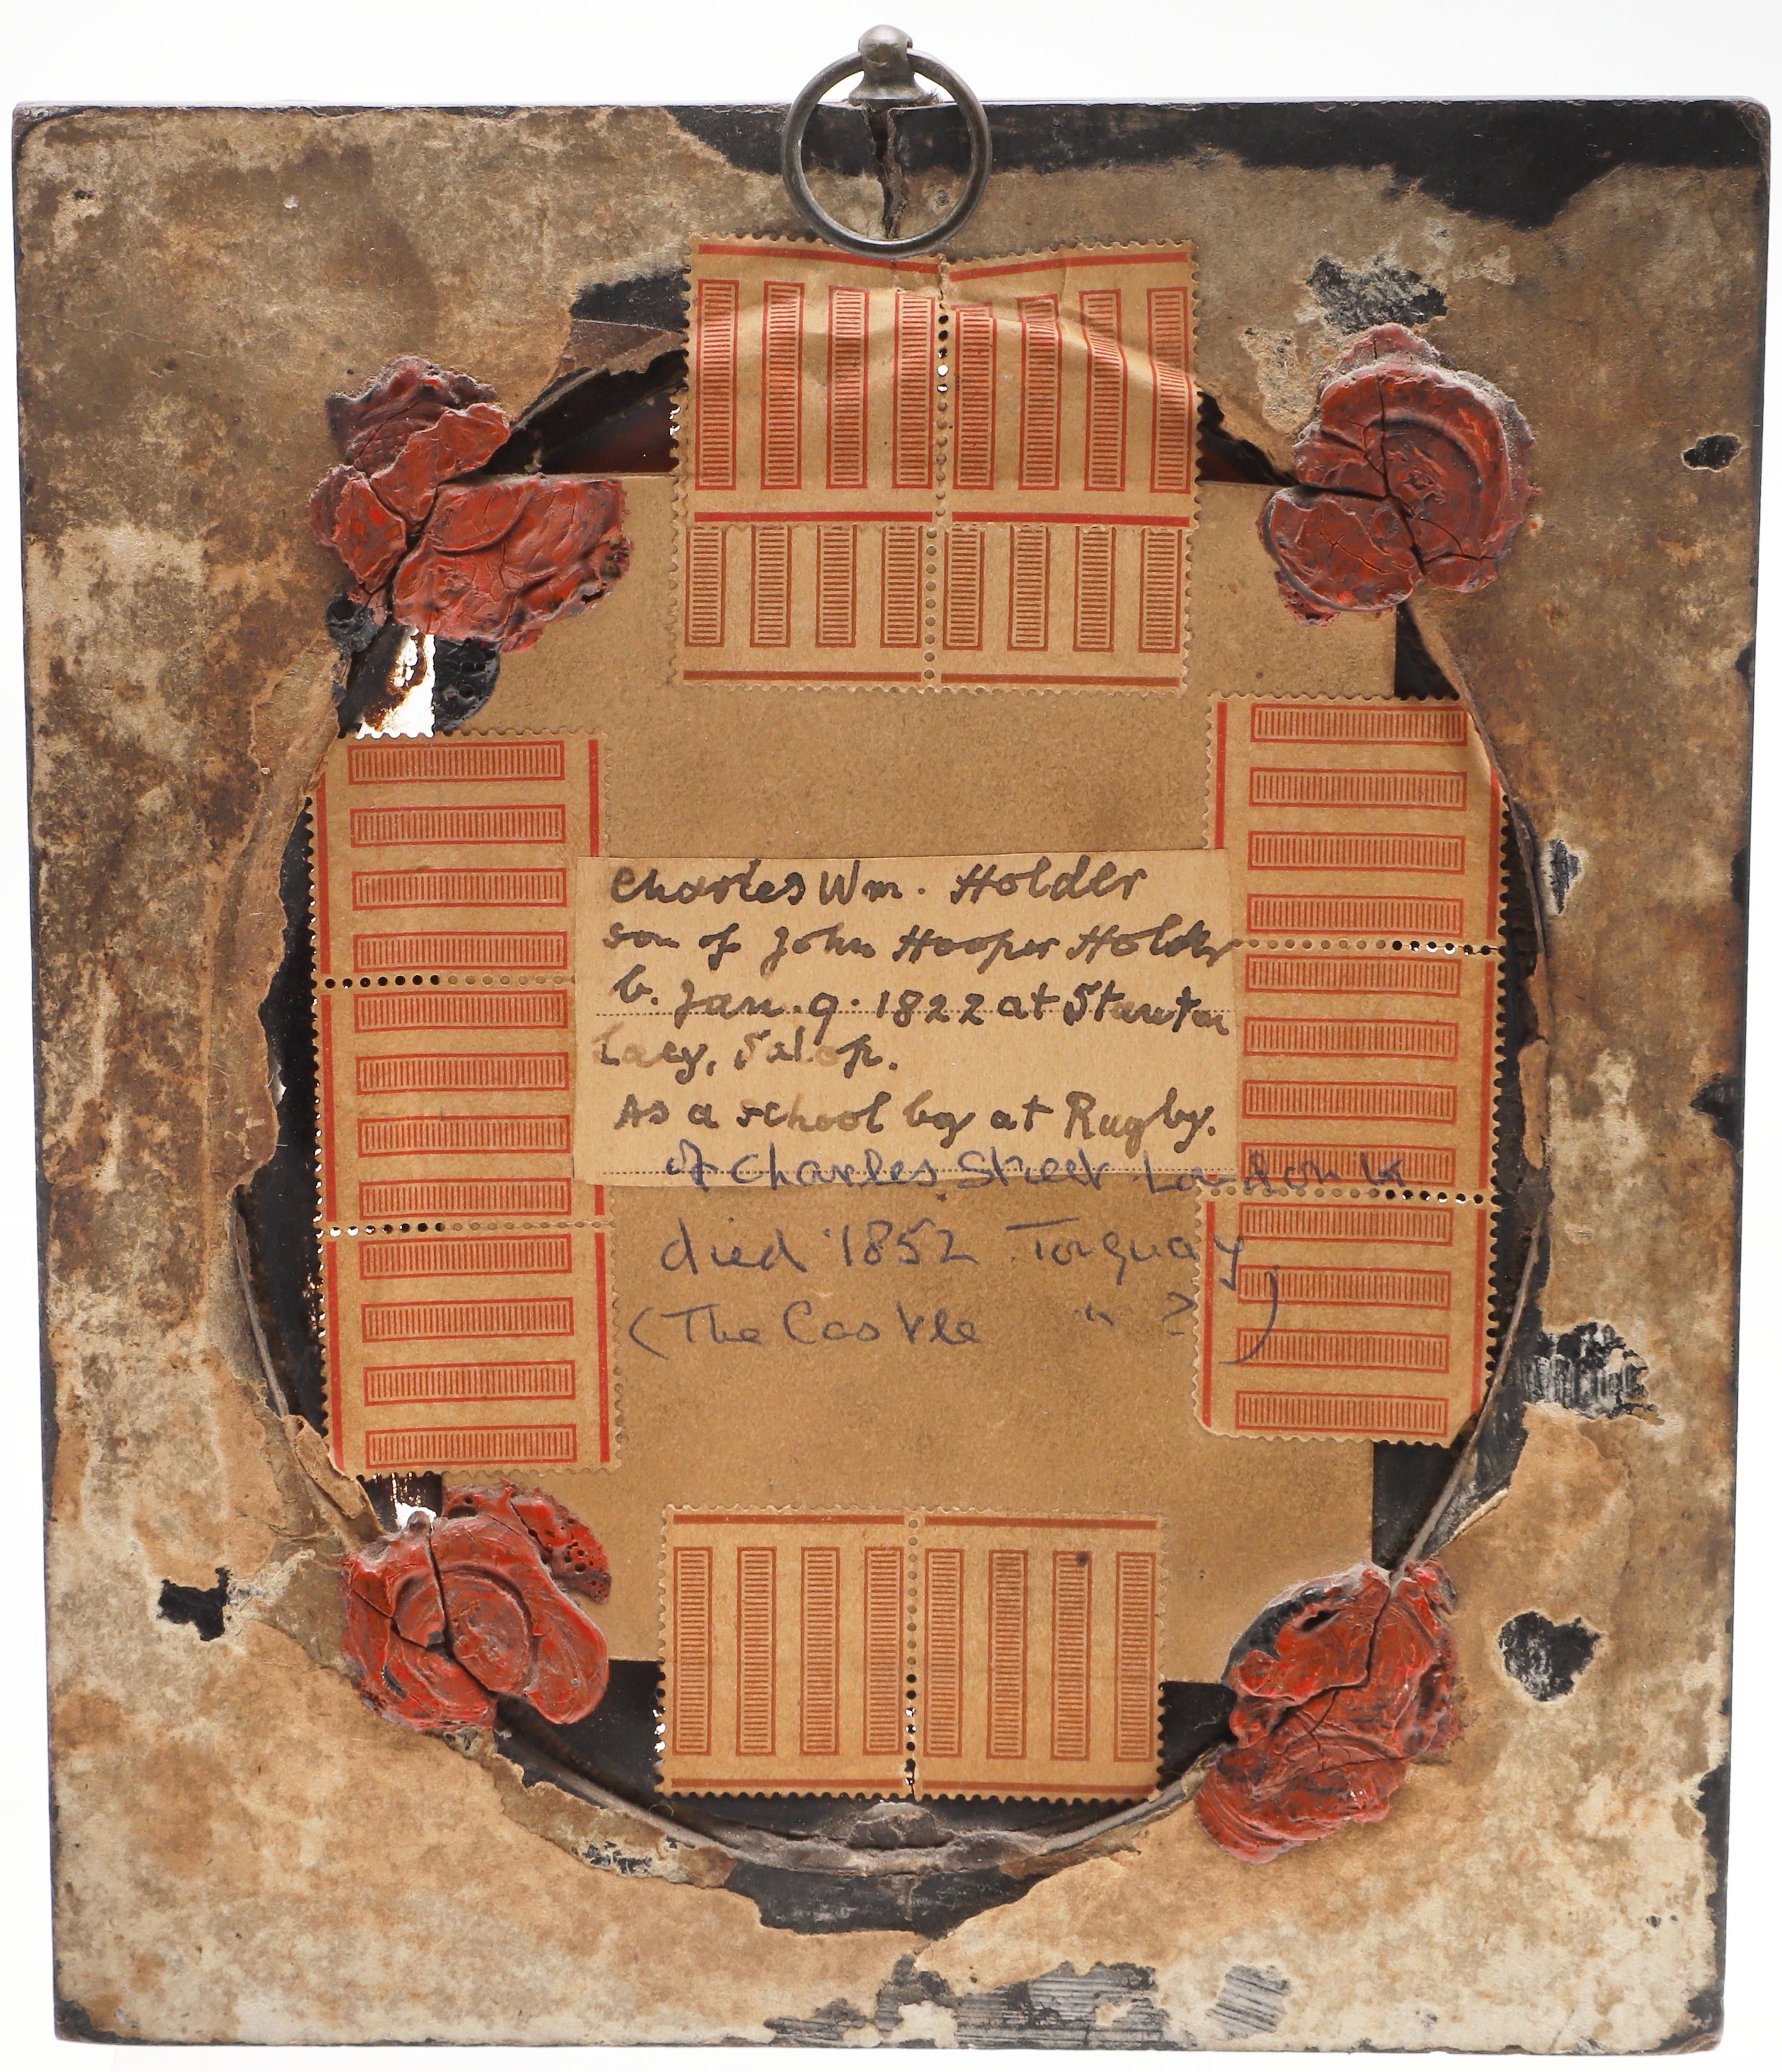 Charles Wm. Holder
son of John Hooper Holder
b. Jan. 9. 1822 at Stanton
Lacy, Salop.
As a school boy at Rugby.
of Charles Street London
died 1852 Torquay
(The Castle " ? )